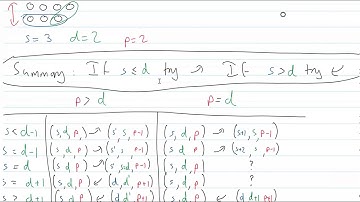 s=3 d=2 p=2
Summary: If s≤d, try ↗ If s>d try ↙
p>d p=d
s<d-1 (s,d,p)→(s',s,p-1) (s,d,p)→(s+1,s,p-1)
s=d-1 (s,d,p)→(s',s,p-1) (s,d,p)→(s+2,s,p-1)
s=d (s,d,p)→(s,s,p-1) (s,d,p) ?
s=d+1 (s,d,p)↙(d,d',p+1) (s,d,p) ?
s>d+1 (s,d,p)↙(d,d',p+1) (s,d,p)↙(d,d+1,p+1)